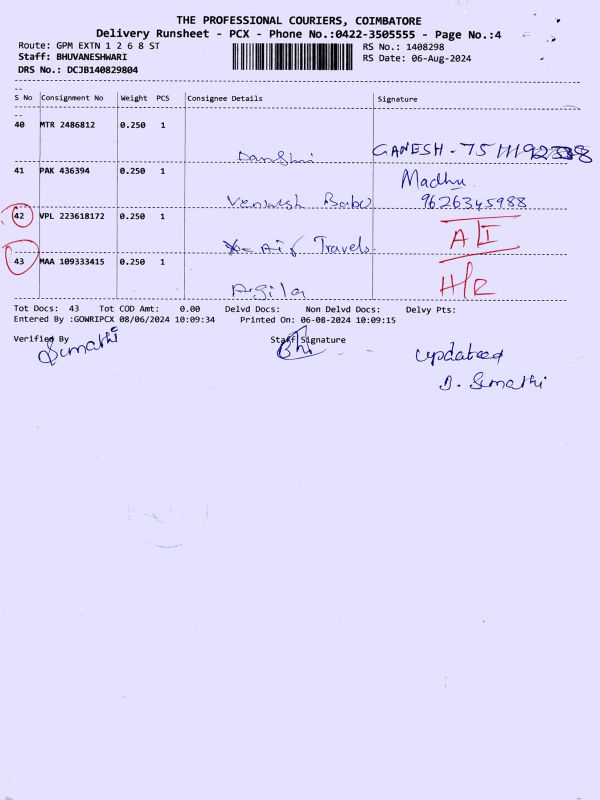 THE PROFESSIONAL COURIERS, COIMBATORE
Delivery Runsheet - PCX - Phone No.:0422-3505555 - Page No.:4
Route: GPM EXTN 1 2 6 8 ST RS No.: 1408298
Staff: BHUVANESHWARI RS Date: 06-Aug-2024
DRS No.: DCJB140829804
S No Consignment No Weight PCS Consignee Details Signature
40 MTR 2486812 0.250 1
GANESH -
41 PAK 436394 0.250 1 Madhu
Babu 9626345988
42 VPL 223618172 0.250 1
Air Travels
43 MAA 109333415 0.250 1
Agila
Tot Docs: 43 Tot COD Amt: 0.00 Delvd Docs: Non Delvd Docs: Delvy Pts:
Entered By :GOWRIPCX 08/06/2024 10:09:34 Printed On: 06-08-2024 10:09:15
Verified By Staff Signature
Sumathi updated
D. Sumathi